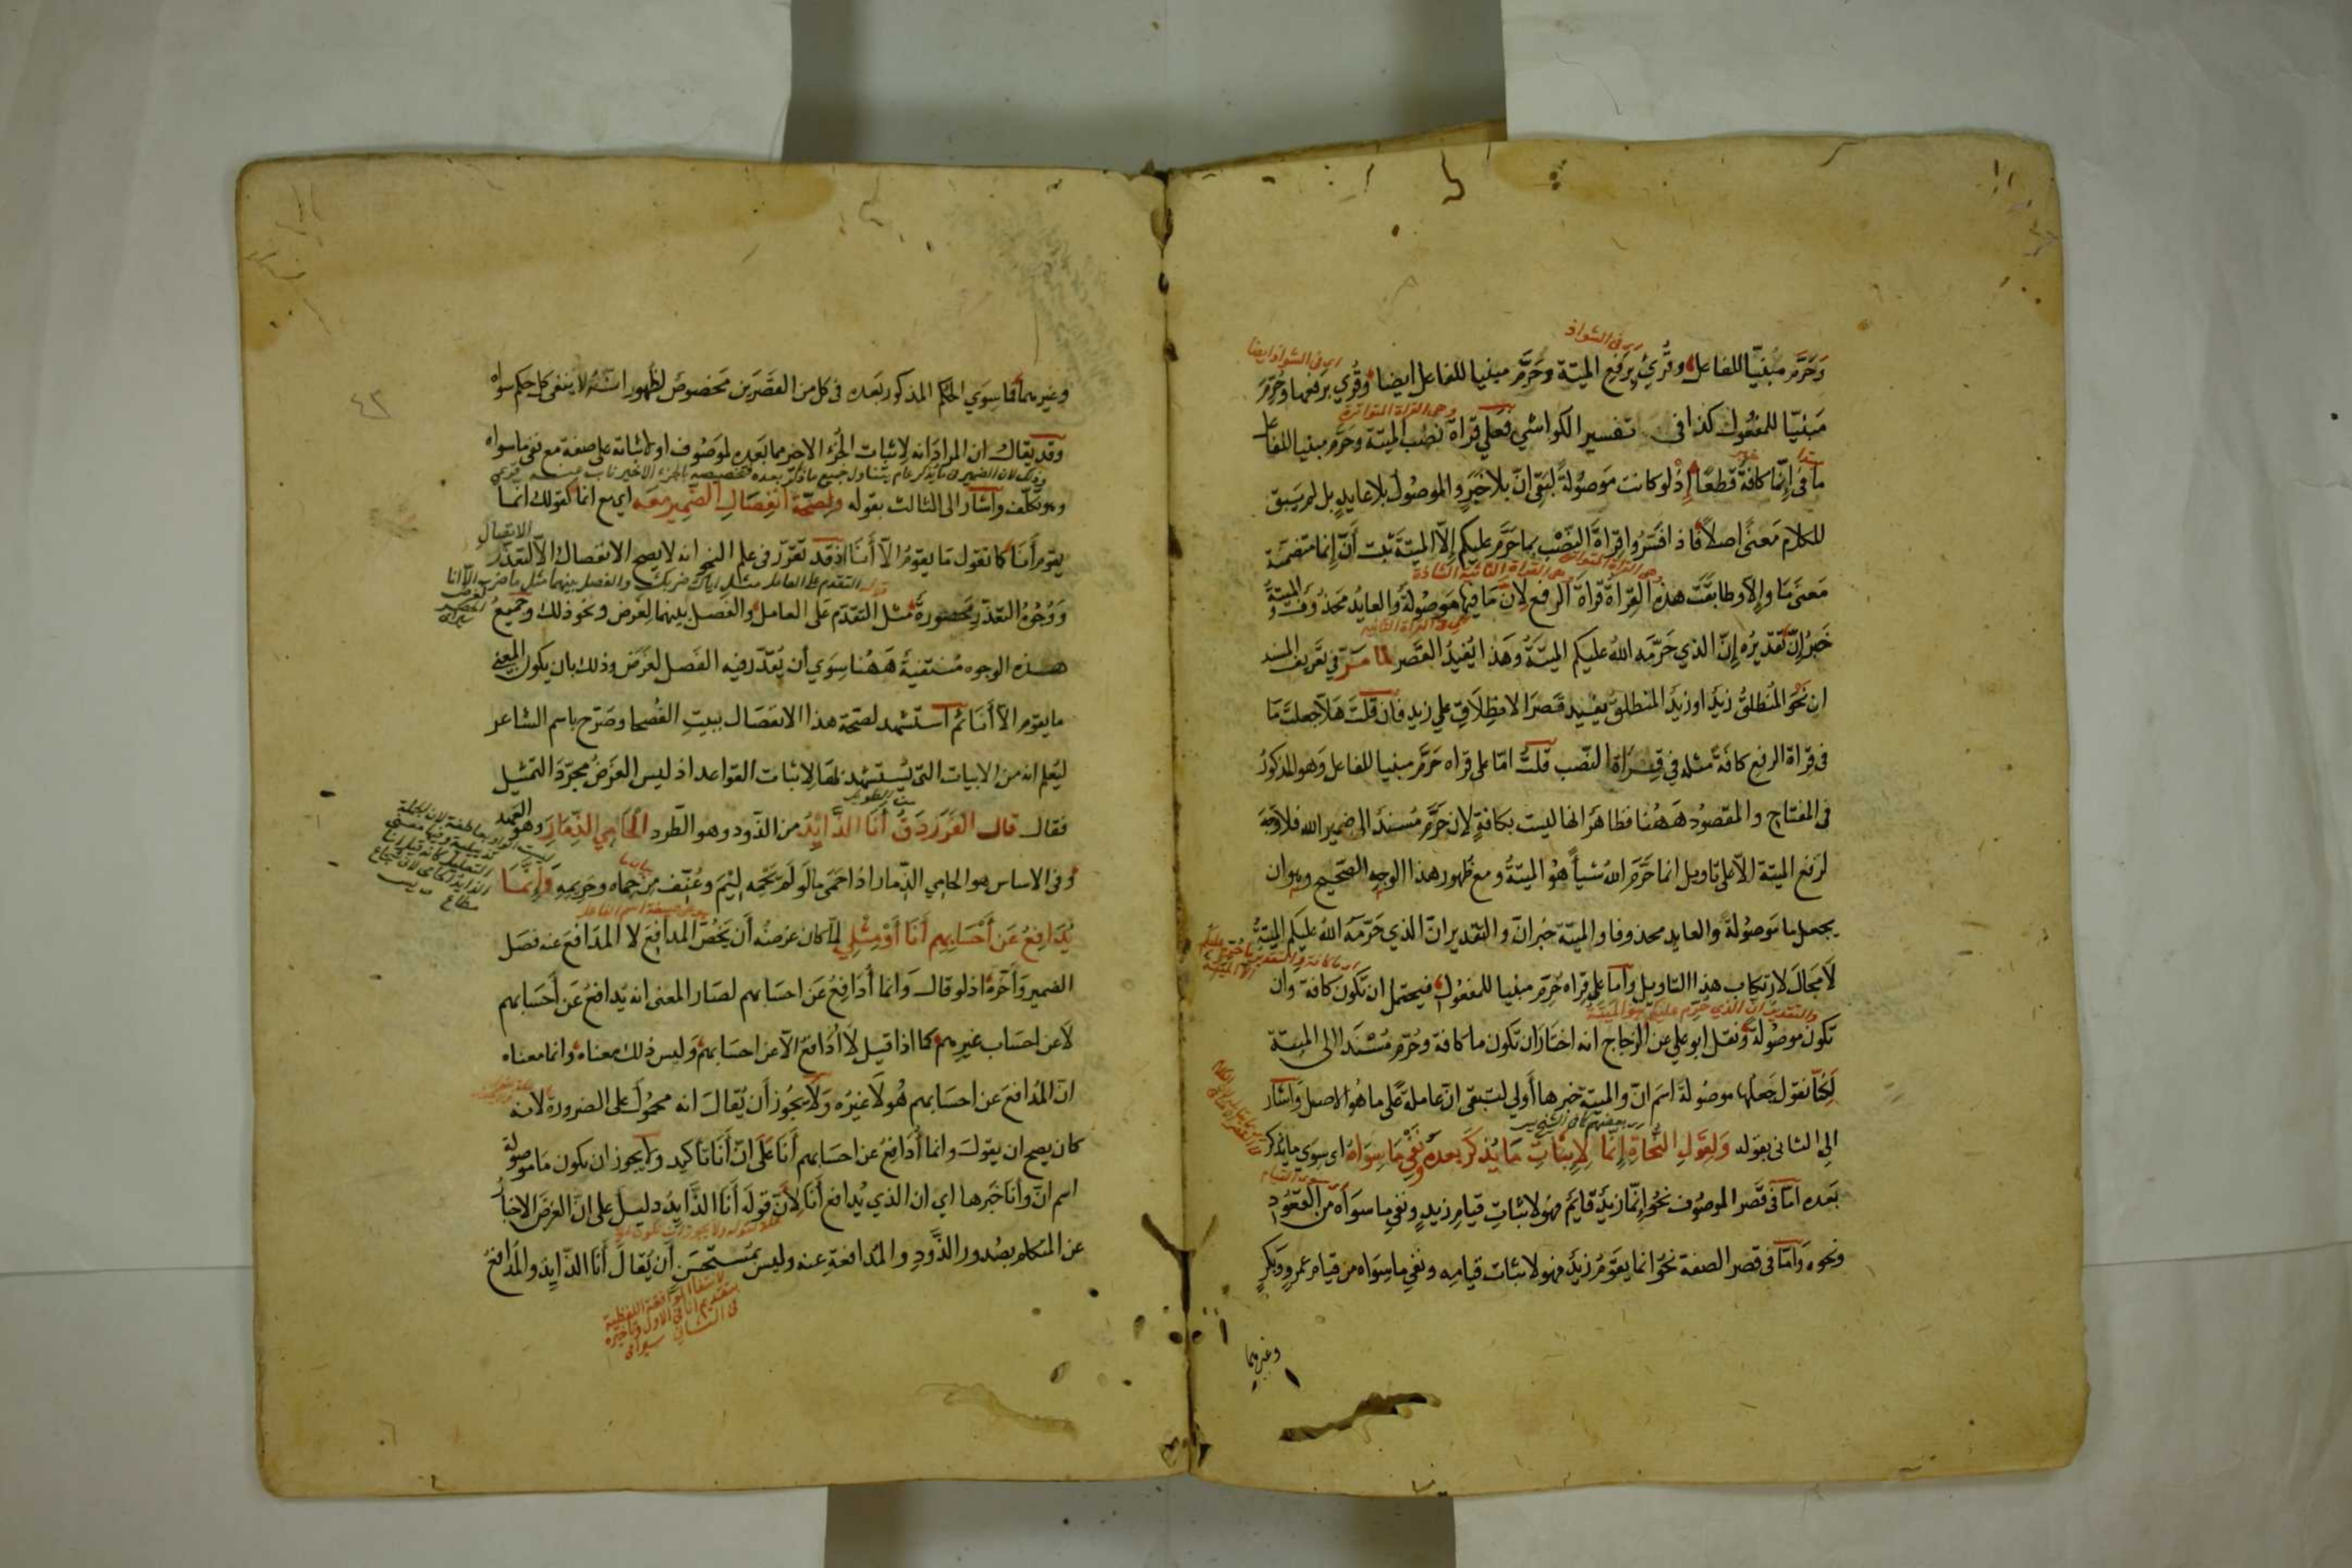 وحرّم مبنيا للفاعل وقرئ برفع الميتة وحرّم مبنيا للفاعل ايضا وقرئ برفعها وحُرِّم
مبنيّا للمفعول كذا في تفسير الكواشي فعلى قراة نصب الميتة وحرّم مبنيا للفاعل
ما في إنّما كافة قطعًا إذ لو كانت موصولة لبقي انّ بلا خبر والموصول بلا عايد بل لم يبق
للكلام معنًى اصلاً فاذا فسّروا قراة النصب بما حرّم عليكم إلّا الميتة ثبت أنّ إنما متضمنة
معنى ما وإلّا وطابقت هذه القراة قراة الرفع لانّ ما فيها موصولة والعايد محذوف والميتة
خبر إنّ تقديره إنّ الذي حرّمه الله عليكم الميتة وهذا يفيد القصر لما مرّ في تعريف المسند
ان نحو المنطلق زيد او زيد المنطلق يفيد قصر الانطلاق على زيد فان قلت هلّا جعلت ما
في قراة الرفع كافة مثله في قراة النصب قلت امّا على قراه حرّم مبنيا للفاعل وهو المذكور
في المفتاح والمقصود ههنا فظاهر انها ليست بكافة لان حرّم مسند الى ضمير الله فلا وجه
لرفع الميتة الّا على تاويل انما حرّم الله شيأ هو الميتة ومع ظهور هذا الوجه الصحيح وهو ان
يجعل ما موصولة والعايد محذوفا والميتة خبر انّ والتقدير انّ الذي حرّمه الله عليكم الميتة
لا مجال لارتكاب هذا التاويل وامّا على قراه حُرِّم مبنيا للمفعول فيحتمل ان تكون كافة وان
تكون موصولة ونقل ابو علي عن الزجاج انه اختار ان تكون ما كافة وحُرّم مسندا الى الميتة
لكنّا نقول جعلها موصولة اسم انّ والميتة خبرها أولى لتبقى انّ عاملة على ما هو الاصل واشار
الى الثاني بقوله ولقول النحاة إنّما لإثبات ما يذكر بعده ونفي ما سواه اى سوى ما يذكر
بعده امّا في قصر الموصوف نحو إنّما زيد قايم فهو لاثبات قيام زيد ونفي ما سواه من القعود
ونحوه وامّا في قصر الصفة نحو انما يقوم زيد فهو لاثبات قيامه ونفي ما سواه من قيام عمرو وبكر
وغيرهما
وغيرهما فما سوى الحكم المذكور بعده في كل من القصرين مخصوص لظهور انّه لا ينفى كل حكم سواه
وقد يقال ان المراد انه لإثبات الجزء الاخير مما بعده لموصوف او لاثباته على صفة مع نفي ما سواه
وهو تكلّف واشار الى الثالث بقوله ولصحّة انفصال الضمير معه اي مع انما كقولك انما
يقوم أنا كما تقول ما يقوم الّا أنا اذ قد تقرّر في علم النحو انه لا يصح الانفصال الّا لتعذّر الاتصال
ووجوه التعذّر محصورة مثل التقدّم على العامل والفصل بينهما لغرض ونحو ذلك وجميع
هذه الوجوه منتفية ههنا سوى أن يُقدّر فيه الفصل لغرض وذلك بان يكون المعنى
ما يقوم الّا أنا ثم استشهد لصحّة هذا الانفصال ببيت الفصحا وصرّح باسم الشاعر
ليعلم انه من الابيات التي يُستشهد بها لاثبات القواعد اذ ليس الغرض مجرّد التمثيل
فقال قال الفرزدق أنا الذّايد من الذّود وهو الطّرد الحامي الذّمار وهو العهد
وفي الاساس هو الحامي الذّمار اذا حمى ما لو لم يحمه ليم وعُنّف من حماه وحريمه وإنّما
يُدافع عن أحسابهم أنا أو مثلي لمّا كان غرضه أن يخصّ المدافِع لا المدافَع عنه فصل
الضمير وأخّره اذ لو قال وانما أدافع عن احسابهم لصار المعنى انه يدافع عن أحسابهم
لا عن احساب غيرهم كما اذا قيل لا أدافع الّا عن احسابهم وليس ذلك معناه وانما معناه
انّ المدافع عن احسابهم هو لا غيره ولا يجوز أن يُقال انه محمول على الضرورة لانه
كان يصح ان يقول وانما أدافع عن احسابهم أنا على انّ أنا تأكيد ولا يجوز ان يكون ما موصولة
اسم انّ وأنا خبرها اي ان الذي يُدافع أنا لأنّ قوله أنا الذّايد دليل على انّ الغرض الاخبار
عن المتكلم بصدور الذّود والمدافعة عنه وليس بمستحسن أن يُقال أنا الذّايد والمدافع